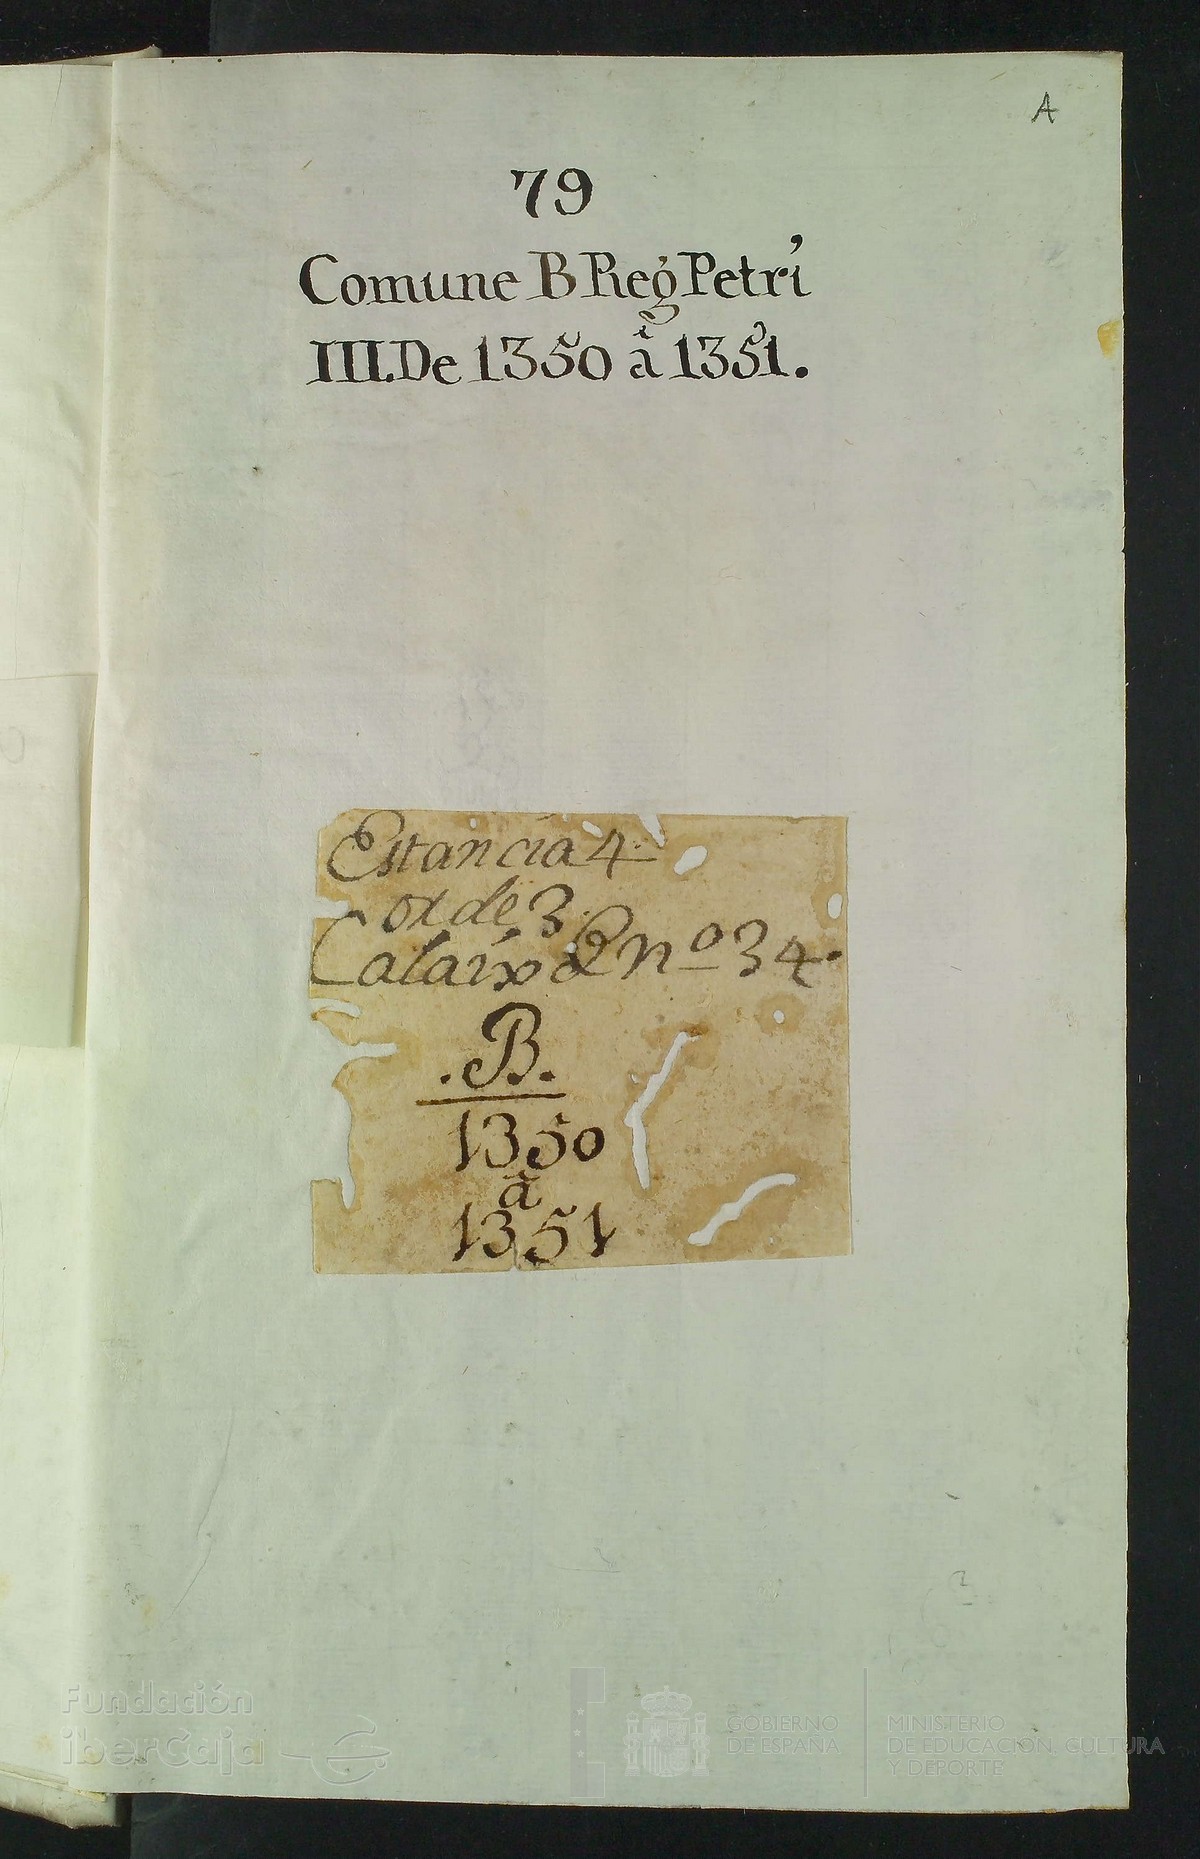 A
79
Comune B Reg Petri
i
III. De 1350 à 1351.
Estancia 4
orde 3
Calaix nº 34.
.B.
1350
à
1351
Fundación
iberCaja
GOBIERNO
DE ESPAÑA
MINISTERIO
DE EDUCACIÓN, CULTURA
Y DEPORTE